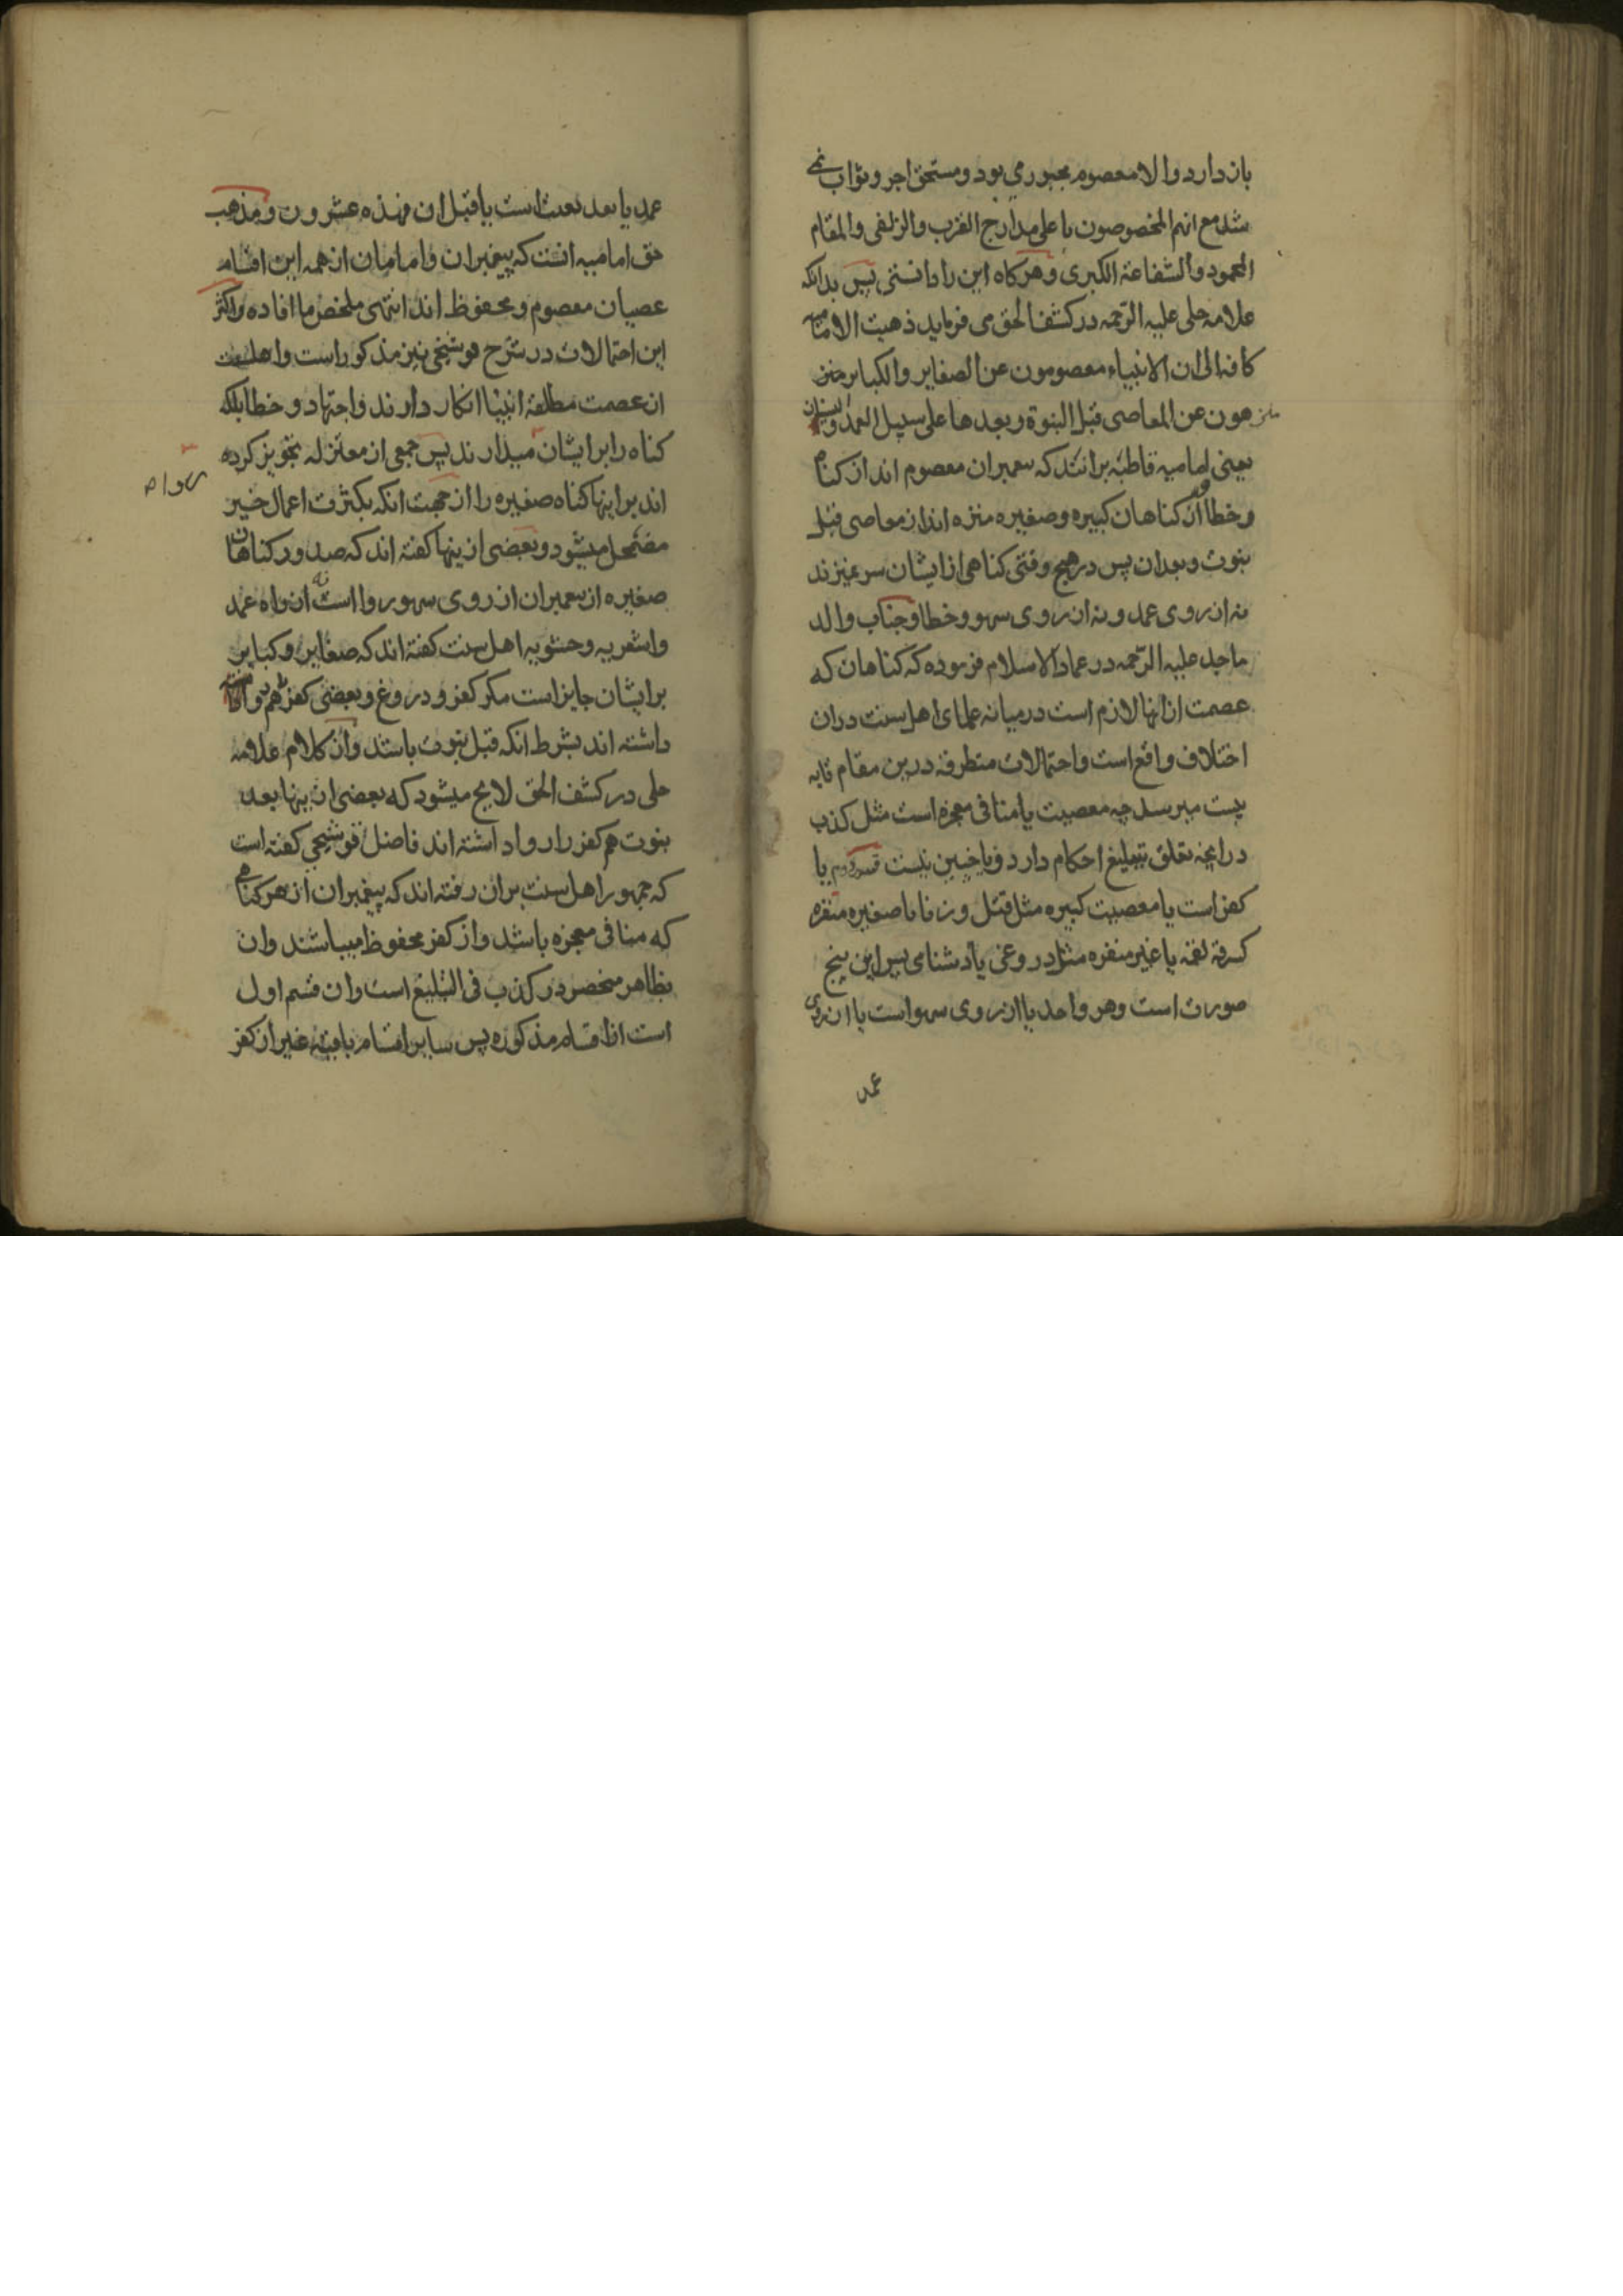 باز دارد والا معصوم مجبور می بود و مستحق اجر و ثواب نمی
شد مع انهم المخصوصون باعلی مدارج القرب والزلفی والمقام
المحمود والشفاعة الکبری وهرکاه این را دانستی پس بدانکه
علامه حلی علیه الرحمه در کشف الحق می فرماید ذهبت الامامیه
کافة الی ان الانبیاء معصومون عن الصغایر والکبایر منز
هون عن المعاصی قبل النبوة وبعدها علی سبیل العمد والنسیان
یعنی امامیه قاطبة برانند که پیغمبران معصوم اند از کناه
وخطا و از کناهان کبیره وصغیره منزه اند از معاصی قبل
نبوت وبعد ان پس در هیچ وقتی کناهی از ایشان سر نمیزند
نه از روی عمد و نه از روی سهو وخطا وجناب والد
ماجد علیه الرحمه در عماد الاسلام فرموده که کناهان که
عصمت از انها لازم است در میانه علمای اهل سنت دران
اختلاف واقع است واحتمالات متطرقه درین مقام تا به
بیست میرسد چه معصیت یا منافی معجزه است مثل کذب
در انچه تعلق بتبلیغ احکام دارد ویا چنین نیست قسم دوم یا
کفر است یا معصیت کبیره مثل قتل و زنا یا صغیره منفره
کسرقة لقمه یا غیر منفره مثل دروغی یا دشنامی پس این پنج
صورت است وهر واحد یا از روی سهو است یا از روی
عمد
عمد یا بعد بعثت است یا قبل ان فهذه عشرون ومذهب
حق امامیه انست که پیغمبران وامامان از همه این اقسام
عصیان معصوم و محفوظ اند انتهی ملخص ما افاده واکثر
این احتمالات در شرح قوشجی نیز مذکور است واهل سنت
از عصمت مطلقه انبیا انکار دارند واجتهاد و خطا بلکه
کناه را بر ایشان میدارند پس جمعی از معتزله تجویز کرده
روا
اند بر انها کناه صغیره را از جهت انکه بکثرت اعمال خیر
مضمحل میشود و بعضی از ینها کفته اند که صدور کناهان
صغیره از پیغمبران از روی سهو روا است نه از راه عمد
واشعریه و حشویه اهل سنت کفته اند که صغایر و کبایر
بر ایشان جایز است مکر کفر و دروغ و بعضی کفر هم روا
داشته اند بشرط انکه قبل نبوت باشد واز کلام علامه
حلی در کشف الحق لایح میشود که بعضی از ینها بعد
نبوت هم کفر را روا داشته اند فاضل قوشجی کفته است
که جمهور اهل سنت بران رفته اند که پیغمبران از هر کناهی
که منافی معجزه باشد واز کفر محفوظ میباشند وان
بظاهر منحصر در کذب فی التبلیغ است وان قسم اول
است از اقسام مذکوره پس سایر اقسام باقیه غیر از کفر